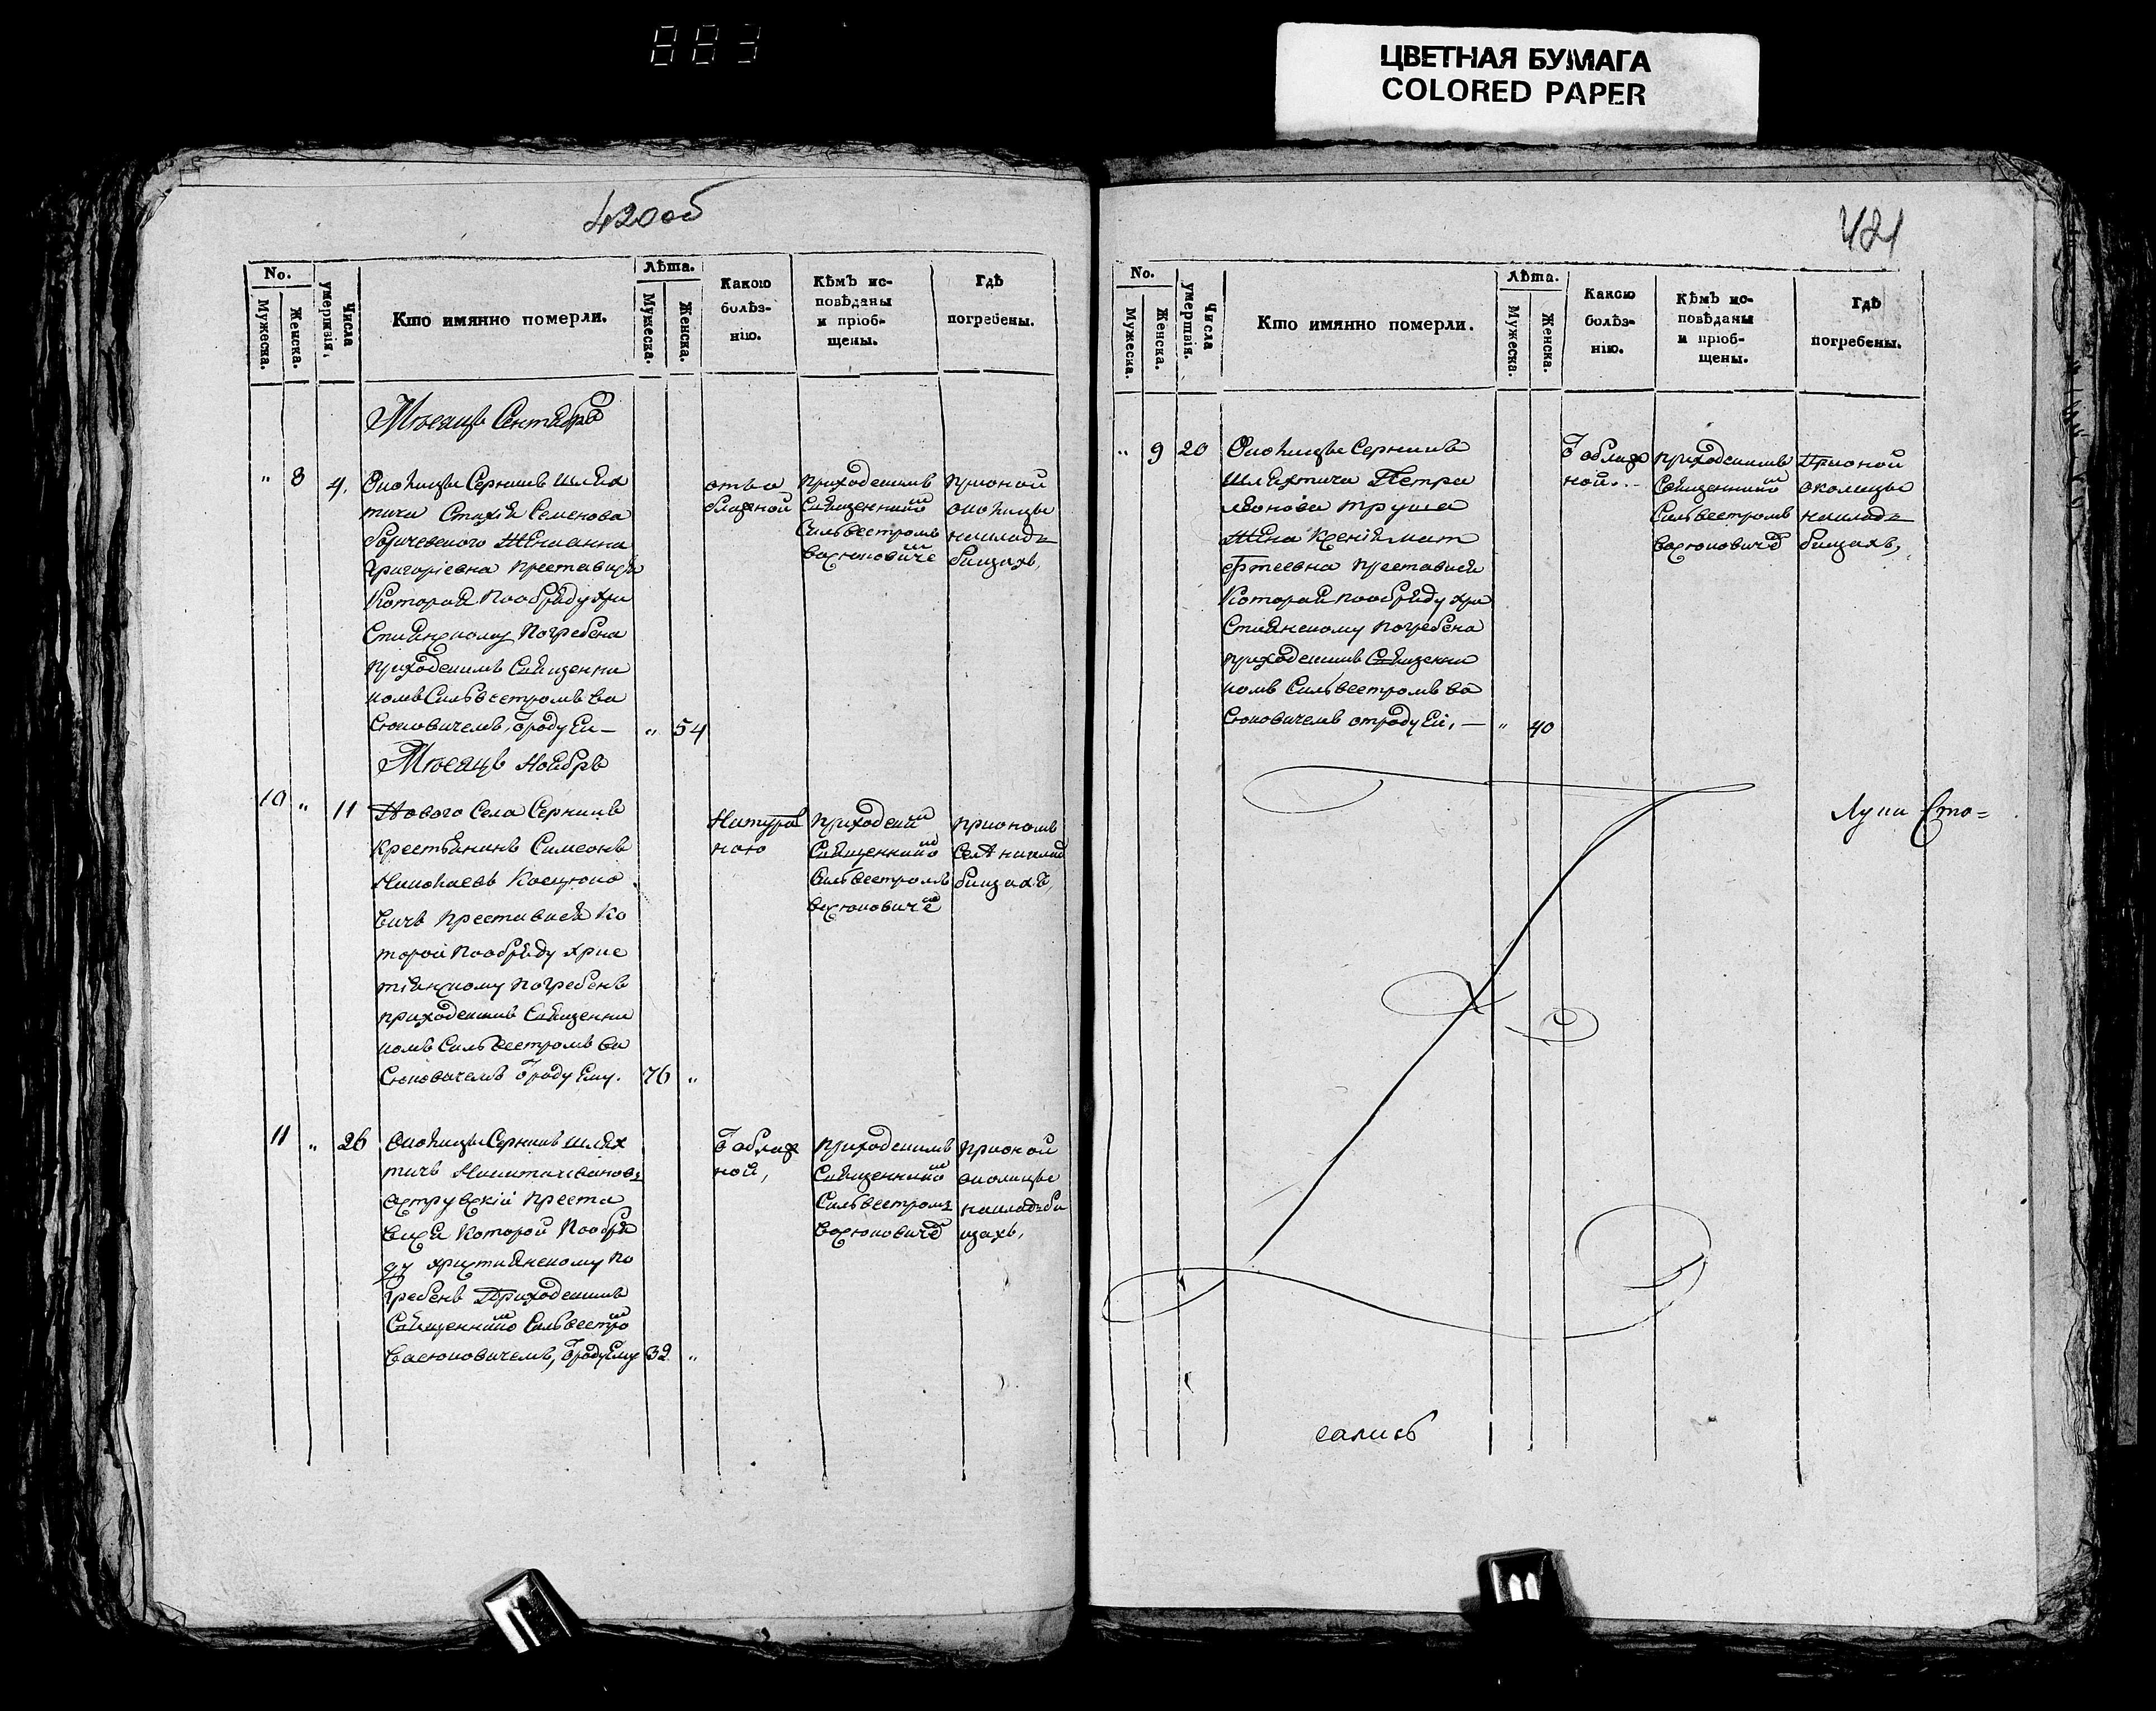 883
ЦВЕТНАЯ БУМАГА
COLORED PAPER
420об
No.
Мужеска.
Женска.
Числа умертвія.
Кто имянно померли.
Лѣта.
Мужеска.
Женска.
Какою болѣз-
нію.
Кѣмъ ис-
повѣданы
и пріоб-
щены.
Гдѣ
погребены.
Мѣсяцъ Сентябрь
" 8 4.
Околицы Серникъ шлях
тича Стахія Семенова
Григоріевна преставися
Которая пообряду хри
стиянскому погребена
приходскимъ Священни
комъ Сильвестромъ Ва
сюковичемъ, ѿроду Ей —
" 54
отъ о
приходскимъ
Священникомъ
Сильвестромъ
Васюковичемъ
прионой
околицы
накладъ
бищахъ,
Мѣсяцъ Ноябрь
10 " 11
Нового Села Серникъ
крестьянинъ Симеонъ
вичъ преставися Ко
торой пообряду хрис
тіянскому погребенъ
приходскимъ Священни
комъ Сильвестромъ Ва
сюковичемъ ѿроду Ему.
76 "
Натурал
ною
приходским
Священником
Сильвестромъ
Васюковичем
приономъ
Селѣ наклад
бищахъ,
11 " 26
Околицы Серникъ шлях
тичъ
преста
вися Которой пообря
ду християнскому по
гребенъ приходскимъ
Священником Сильвестром
Васюковичемъ, ѿроду Ему
32 "
ной,
приходскимъ
Священником
Сильвестромъ
Васюковичем
прионой
околицы
накладъби
щахъ,
421
No.
Мужеска.
Женска.
Числа умертвія.
Кто имянно померли.
Лѣта.
Мужеска.
Женска.
Какою
болѣз-
нію.
Кѣмъ ис-
повѣданы
и пріоб-
щены.
Гдѣ
погребены.
" 9 20
Околицы Серникъ
шляхтича Петра
Жена Ксенія Мат
фтеевна преставися
Которая пообряду хри
стиянскому погребена
приходскимъ Священни
комъ Сильвестромъ Ва
сюковичемъ отроду Ей, —
" 40
ной.
приходскимъ
Священником
Сильвестромъ
Васюковичем
прионой
околицы
накладъ
бищахъ,